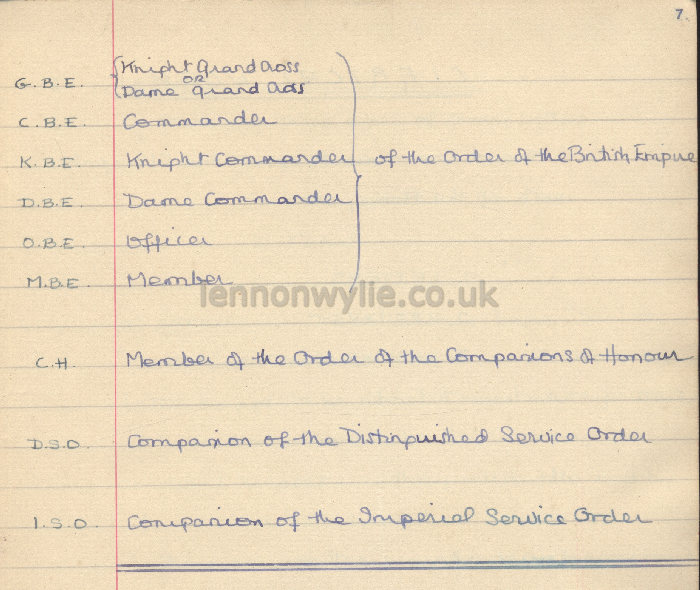 7.
Knight Grand Cross
G.B.E. OR
Dame Grand Cross
C.B.E. Commander
K.B.E. Knight Commander of the Order of the British Empire
D.B.E. Dame Commander
O.B.E. Officer
M.B.E. Member
lennonwylie.co.uk
C.H. Member of the Order of the Companions of Honour
D.S.O. Companion of the Distinguished Service Order
I.S.O. Companion of the Imperial Service Order